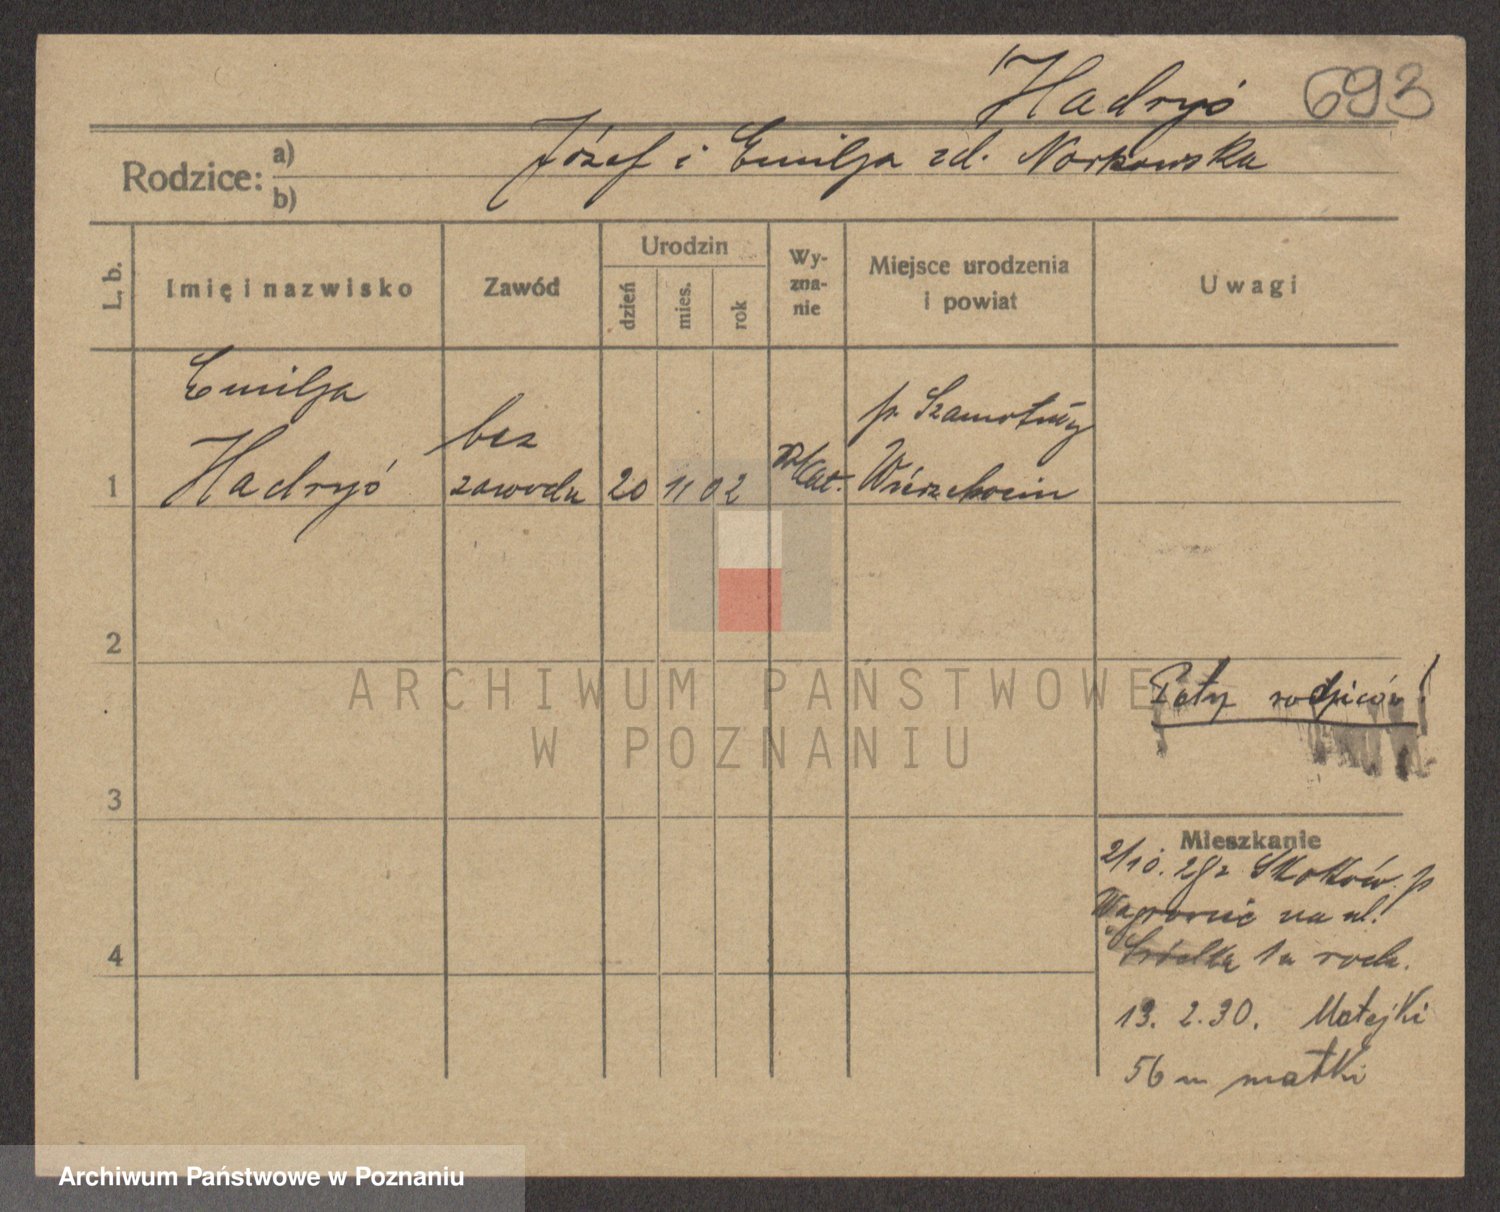 Hadryś 693
Józef i Emilja zd. Norkowska
Rodzice: a)
b)
L. b.
Imię i nazwisko
Zawód
Urodzin
dzień
mies.
rok
Wy-
zna-
nie
Miejsce urodzenia
i powiat
Uwagi
1
Emilja
Hadryś
bez
zawodu
20 11 02
Kat.
p. Szamotuły
Wierzchocin
2
3
4
rodziców!
Mieszkanie
2/10. 28 r. Skoków. p
na ul.
Śródka 1 u rodz.
13. 2. 30. Matejki
56 u matki
ARCHIWUM PAŃSTWOWE
W POZNANIU
Archiwum Państwowe w Poznaniu